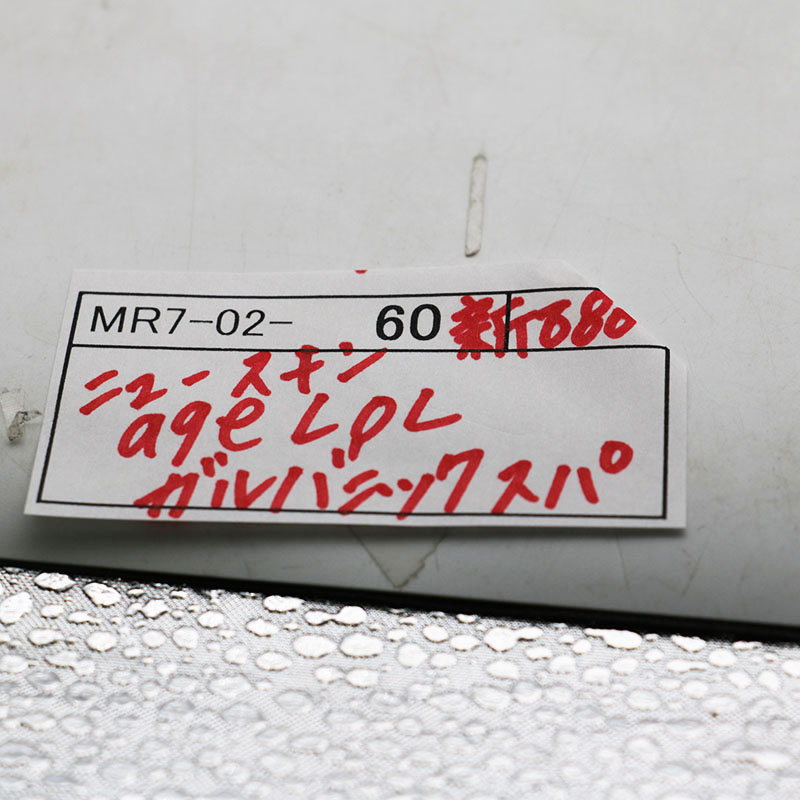 MR7-02- 60 新680
ニュースキン
age LpL
ガルバニックスパ